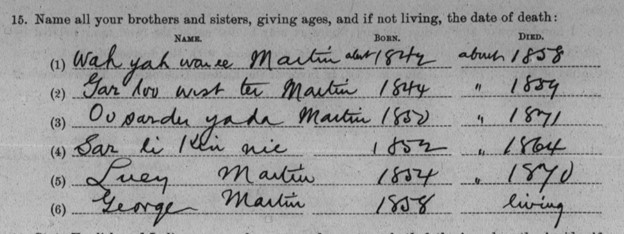 15. Name all your brothers and sisters, giving ages, and if not living, the date of death:
NAME. BORN. DIED.
(1) Wah yah wau ee Martin abt 1842 about 1858
(2) Gar doo wist tee Martin 1844 " 1859
(3) Ou sardu yada Martin 1850 " 1871
(4) Sar li Kin nie 1852 " 1864
(5) Lucy Martin 1854 " 1870
(6) George Martin 1858 living